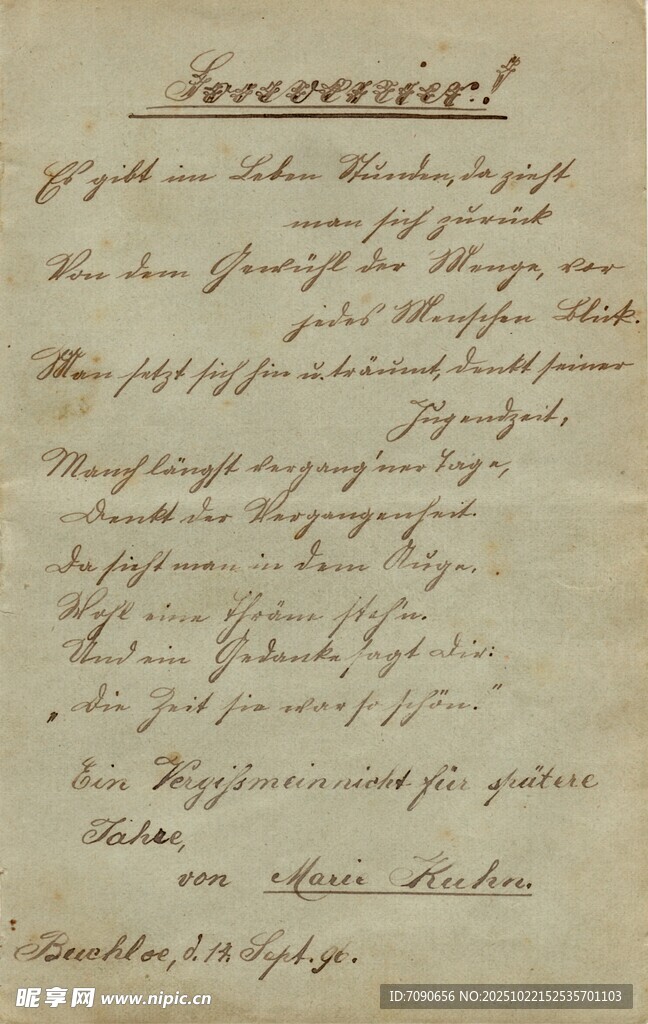 Souvenier.!
Es gibt im Leben Stunden, da zieht
man sich zurück
Von dem Gewühl der Menge, vor
jedes Menschen Blick.
Man setzt sich hin u. träumt, denkt seiner
Jugendzeit,
Manch längst vergang'ner Tage,
Denkt der Vergangenheit.
Da sieht man in dem Auge,
Wohl eine Thräne steh'n.
Und ein Gedanke sagt Dir:
„Die Zeit sie war so schön."
Ein Vergißmeinnicht für spätere
Jahre,
von Marie Kuhn.
Buchloe, d. 14. Sept. 96.
昵享网 www.nipic.cn
ID:7090656 NO:20251022152535701103